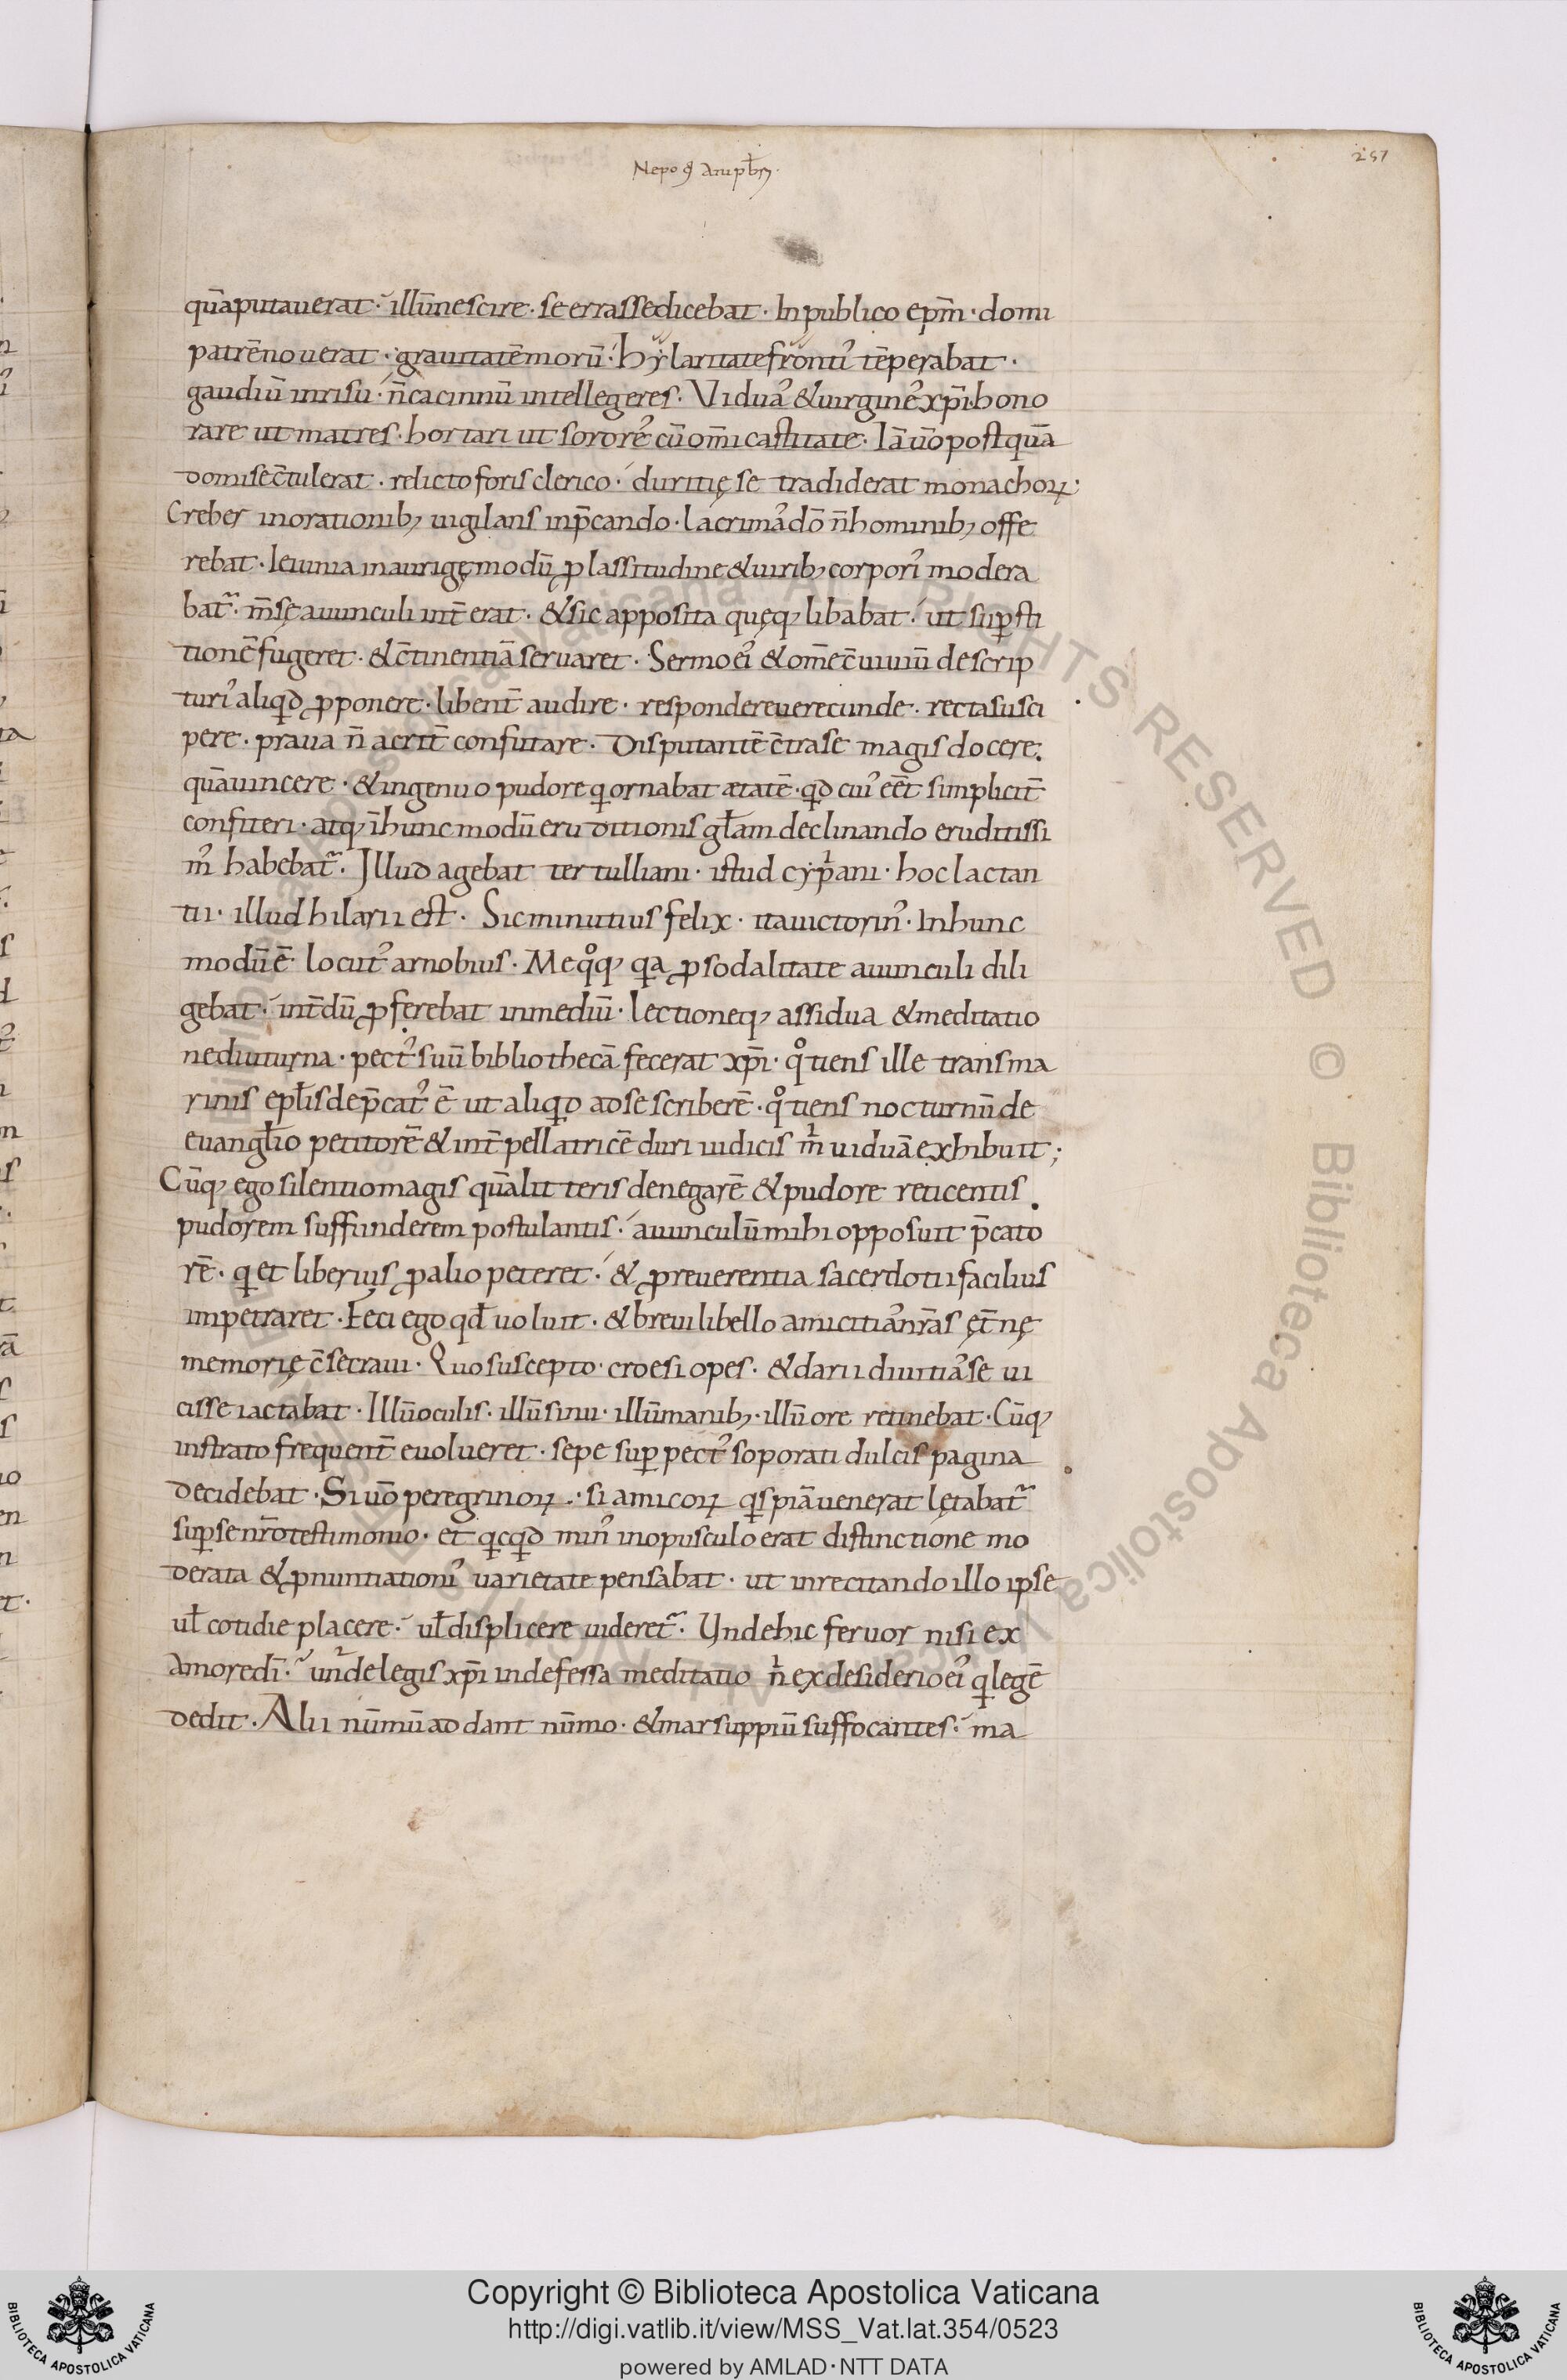 257
quāputauerat· illūnescire· se errassedicebat· In publico ep̄m· domi
patrēnouerat· grauitatēmorū· hẏlaritatefronti᾿ tēperabat·
gaudiū inrisu· n̄cacinnū intellegeres· Vidua᾿ &uirgine᾿ xp̄i· hono
rare ut matres· hortari ut sorore᾿ cū om̄i castitate· Iā ūo postquā
domisec̄tulerat· relicto foris clerico· duritię se tradiderat monachoꝝ·
Creber inorationibꝫ uigilans inp̄cando· lacrima᾿ dō n̄hominibꝫ offe
rebat· Ieiunia inaurigę modū ꝓ lassitudine &uiribꝫ corpori᾿ modera
bat᷑· m̄sę auunculi int̄erat· &sic apposita quęqꝫ libabat· ut suꝑsti
tionē fugeret· &c̄tinentiā seruaret· Sermo ei᾿ & om̄e c̄uiuiū de scrip
turi᾿ aliqd̄ ꝓponere· libent̄ audire· respondereuerecunde· rectasusci
pere· praua n̄ acrit̄ confutare· Disputantē c̄trase magis docere·
quāuincere· &ingenuo pudore qͥ ornabat ætatē· qd̄ cui᾿ eēt simplicit̄
confiteri· atqꝫ īhunc modū eruditionis gl̄am declinando eruditissi
m᾿ habebat᷑· Illud agebat tertulliani· istud cyp̄ani· hoc lactan
tii· illud hilarii est· Sic minutius felix· ita uictorin᾿· In hunc
modū ē locut᾿ arnobius· Me qͦqꝫ qͥa ꝓ sodalitate auunculi dili
gebat· int̄dū ꝓferebat inmediū· lectioneqꝫ assidua &meditatio
nediuturna· pect᾿ suū bibliothecā fecerat xp̄i· qͦtiens ille transma
rinis ep̄lis dep̄cat᾿ ē ut aliqd̄ ad se scriberē· qͦtiens nocturnū de
euangl̄io petitorē &int̄pellatricē duri iudicis mͥ uiduā exhibuit;
Cūqꝫ ego silentio magis quālitteris denegarē &pudore reticentis
pudorem suffunderem postulantis· auunculū mihi opposuit p̄cato
rē· qͥ et liberius ꝓ alio peteret· & ꝓ reuerentia sacerdotii facilius
impetraret· Feci ego qd̄ uoluit· &breui libello amicitia᾿ nr̄as ęt̄nę
memorię c̄secraui· Quo suscepto· croesi opes· &darii diuitia᾿ se ui
cisse iactabat· Illū oculis· illū sinu· illū manibꝫ· illū ore retinebat· Cūqꝫ
instrato frequent̄ euolueret· sepe suꝑ pect᾿ soporati dulcis pagina
decidebat· Si ūo peregrinoꝝ· si amicoꝝ qͥspiā uenerat lętabat᷑
suꝑse nr̄o testimonio· et qͥcqͥd min᾿ inopusculo erat distinctione mo
derata &ꝓnuntiationi᾿ uarietate pensabat· ut inrecitando illo ipse
ul̄ cotidie placere· ul̄ displicere uideret᷑· Unde hic feruor nisi ex
amore dī· unde legis xp̄i indefessa meditatio nͥ ex desiderio ei᾿ qͥ legē
dedit· Alii nūmū addant nūmo· &marsuppiū suffocantes· ma
Copyright © Biblioteca Apostolica Vaticana
http://digi.vatlib.it/view/MSS_Vat.lat.354/0523
powered by AMLAD·NTT DATA